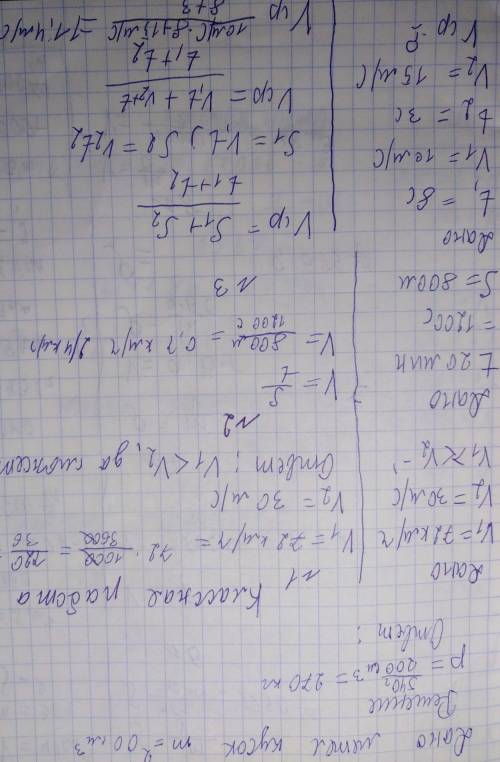 Дано метал кусок m = 200 см³
Решение
p = 540г / 200 см³ = 270 кг
Ответ:
Классная работа
№1
Дано
V₁ = 72 км/ч
V₂ = 30 м/с
V₁ > < V₂ - ?
V₁ = 72 км/ч = 72 · 1000 / 3600 = 720 / 36
V₂ = 30 м/с
Ответ: V₁ < V₂, да сможет
№2
Дано
t 20 мин
= 1200с
S = 800м
V = S / t
V = 800м / 1200 с = 0,7 км/ч 2,4 км/ч
№3
Дано
t₁ = 8с
V₁ = 10 м/с
t₂ = 3с
V₂ = 15 м/с
Vср - ?
Vср = S₁ + S₂ / t₁ + t₂
S₁ = V₁t₁ S₂ = V₂t₂
Vср = V₁t₁ + V₂t₂ / t₁ + t₂
Vср = 10м/с · 8 + 15 м/с / 8 + 3 = 11,4м/с